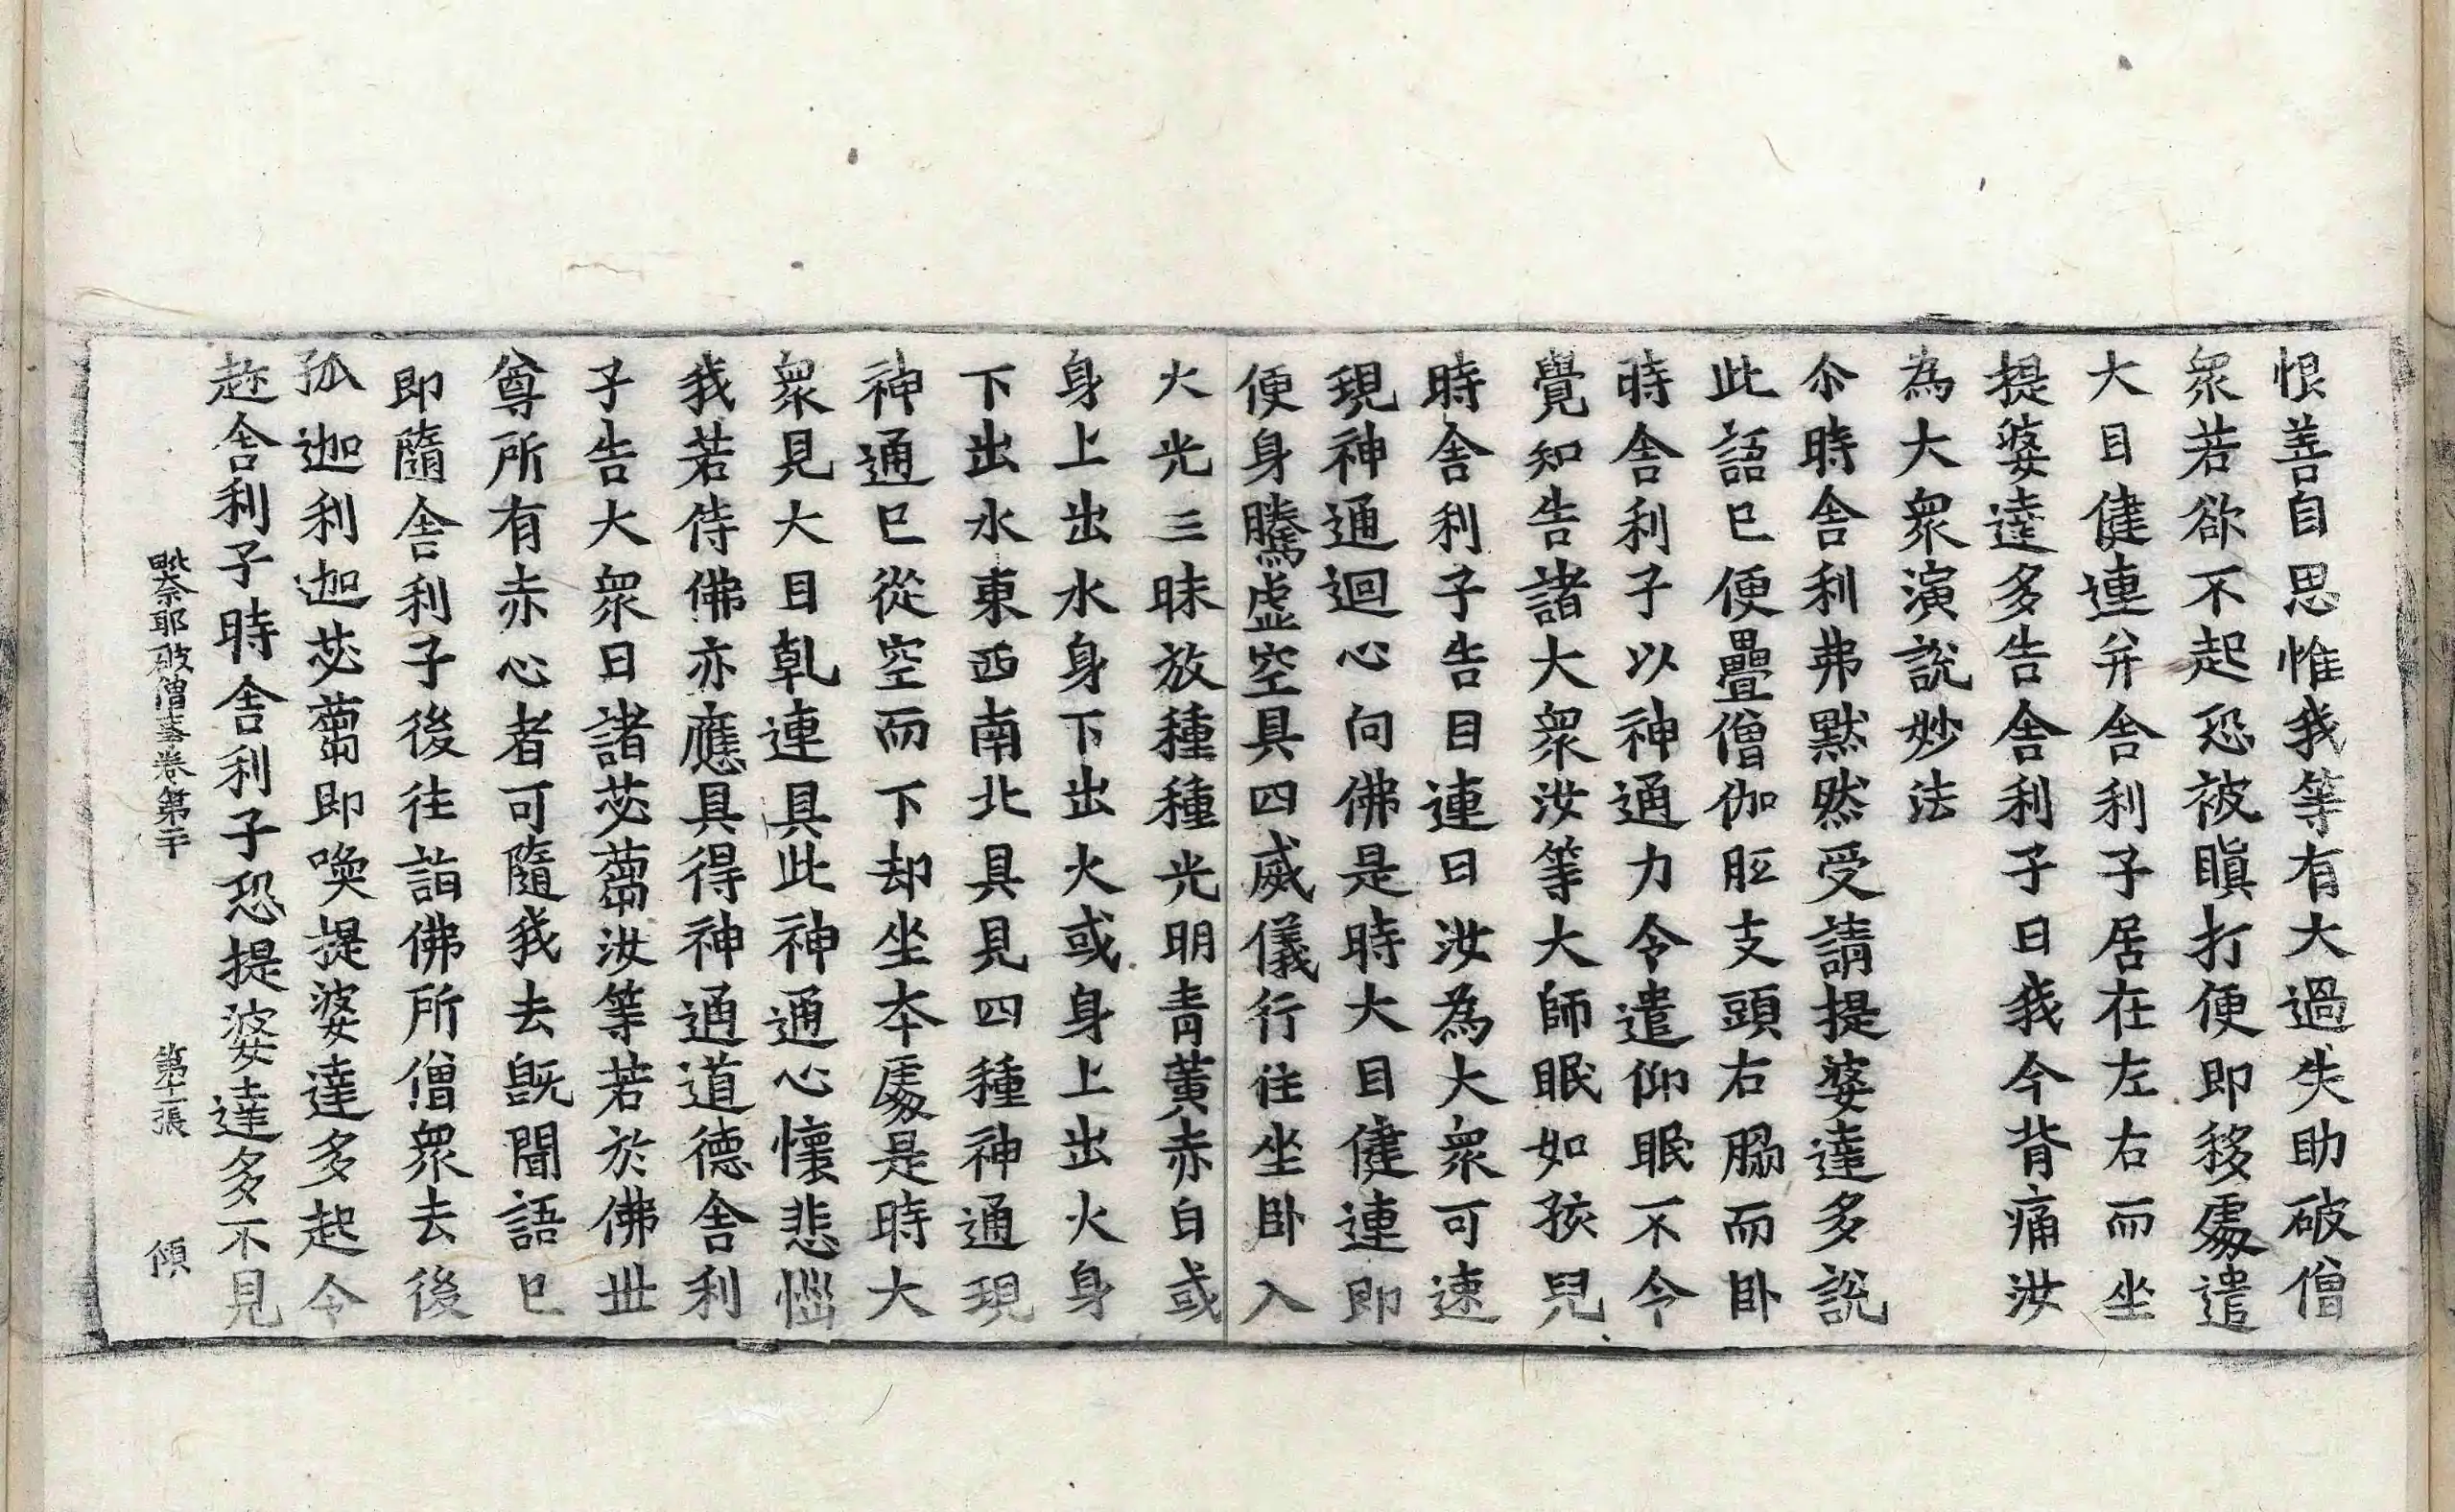 恨善自思惟我等有大過失助破僧
衆若欲不起恐被瞋打便即移處遣
大目健連并舍利子居在左右而坐
提婆達多告舍利子曰我今背痛汝
為大衆演說妙法
尒時舍利弗默然受請提婆達多說
此語已便疊僧伽胝支頭右脇而卧
時舍利子以神通力令遣仰眠不令
覺知告諸大衆汝等大師眠如孩兒
時舍利子告目連曰汝為大衆可速
現神通迴心向佛是時大目健連即
便身騰虛空具四威儀行住坐卧入
火光三昧放種種光明青黃赤白或
身上出水身下出火或身上出火身
下出水東西南北具見四種神通現
神通已從空而下却坐本處是時大
衆見大目乹連具此神通心懷悲惱
我若侍佛亦應具得神通道德舍利
子告大衆曰諸苾蒭汝等若於佛世
尊所有赤心者可隨我去旣聞語已
即隨舍利子後往詣佛所僧衆去後
孤迦利迦苾蒭即喚提婆達多起令
趂舍利子時舍利子恐提婆達多不見
毗奈耶破僧事卷第二十 第十二張 傾